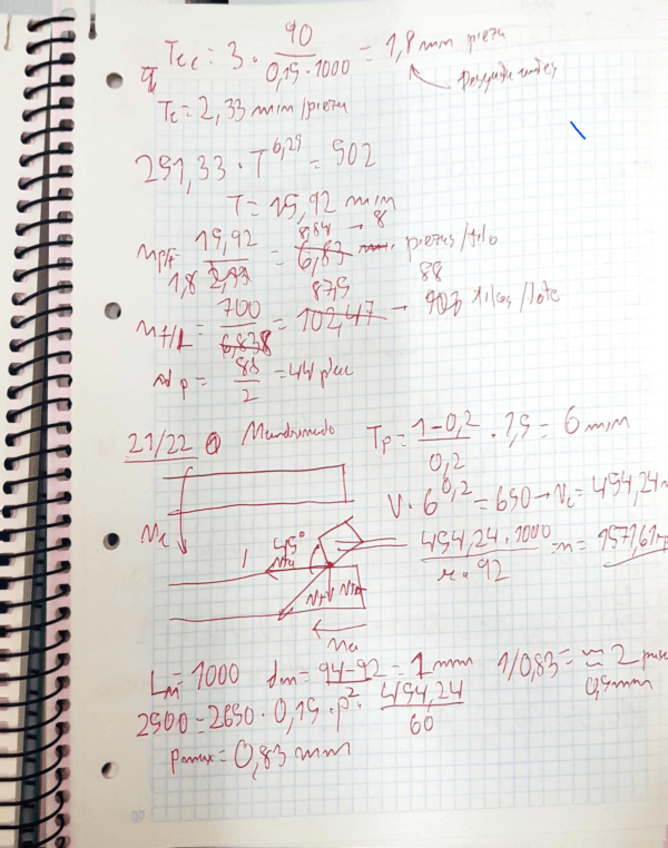 Tcc = 3 · 90 / 0,15 · 1000 = 1,8 min pieza
Tc = 2,33 min/pieza
251,33 · T^0,25 = 502
T = 15,92 min
mp/f = 15,92 / 1,8 2,33 = 6,83 8,84 → 8 piezas/filo
mf/L = 700 / 6,838 = 102,47 87,5 → 103 88 filos/lote
Np = 88 / 2 = 44 plac
21/22 Mandrinado
Tp = 1-0,2 / 0,2 · 1,5 = 6 min
V · 6^0,2 = 650 → Vc = 454,24
454,24 · 1000 / π · 92 = n = 1571,61 rp
Nc
45°
Na
Lm = 1000 dm = 94-92 = 1 mm 1/0,83 = ≈ 2 pasa
0,5 mm
2500 = 2650 · 0,15 · p² · 454,24 / 60
Pmax = 0,83 mm